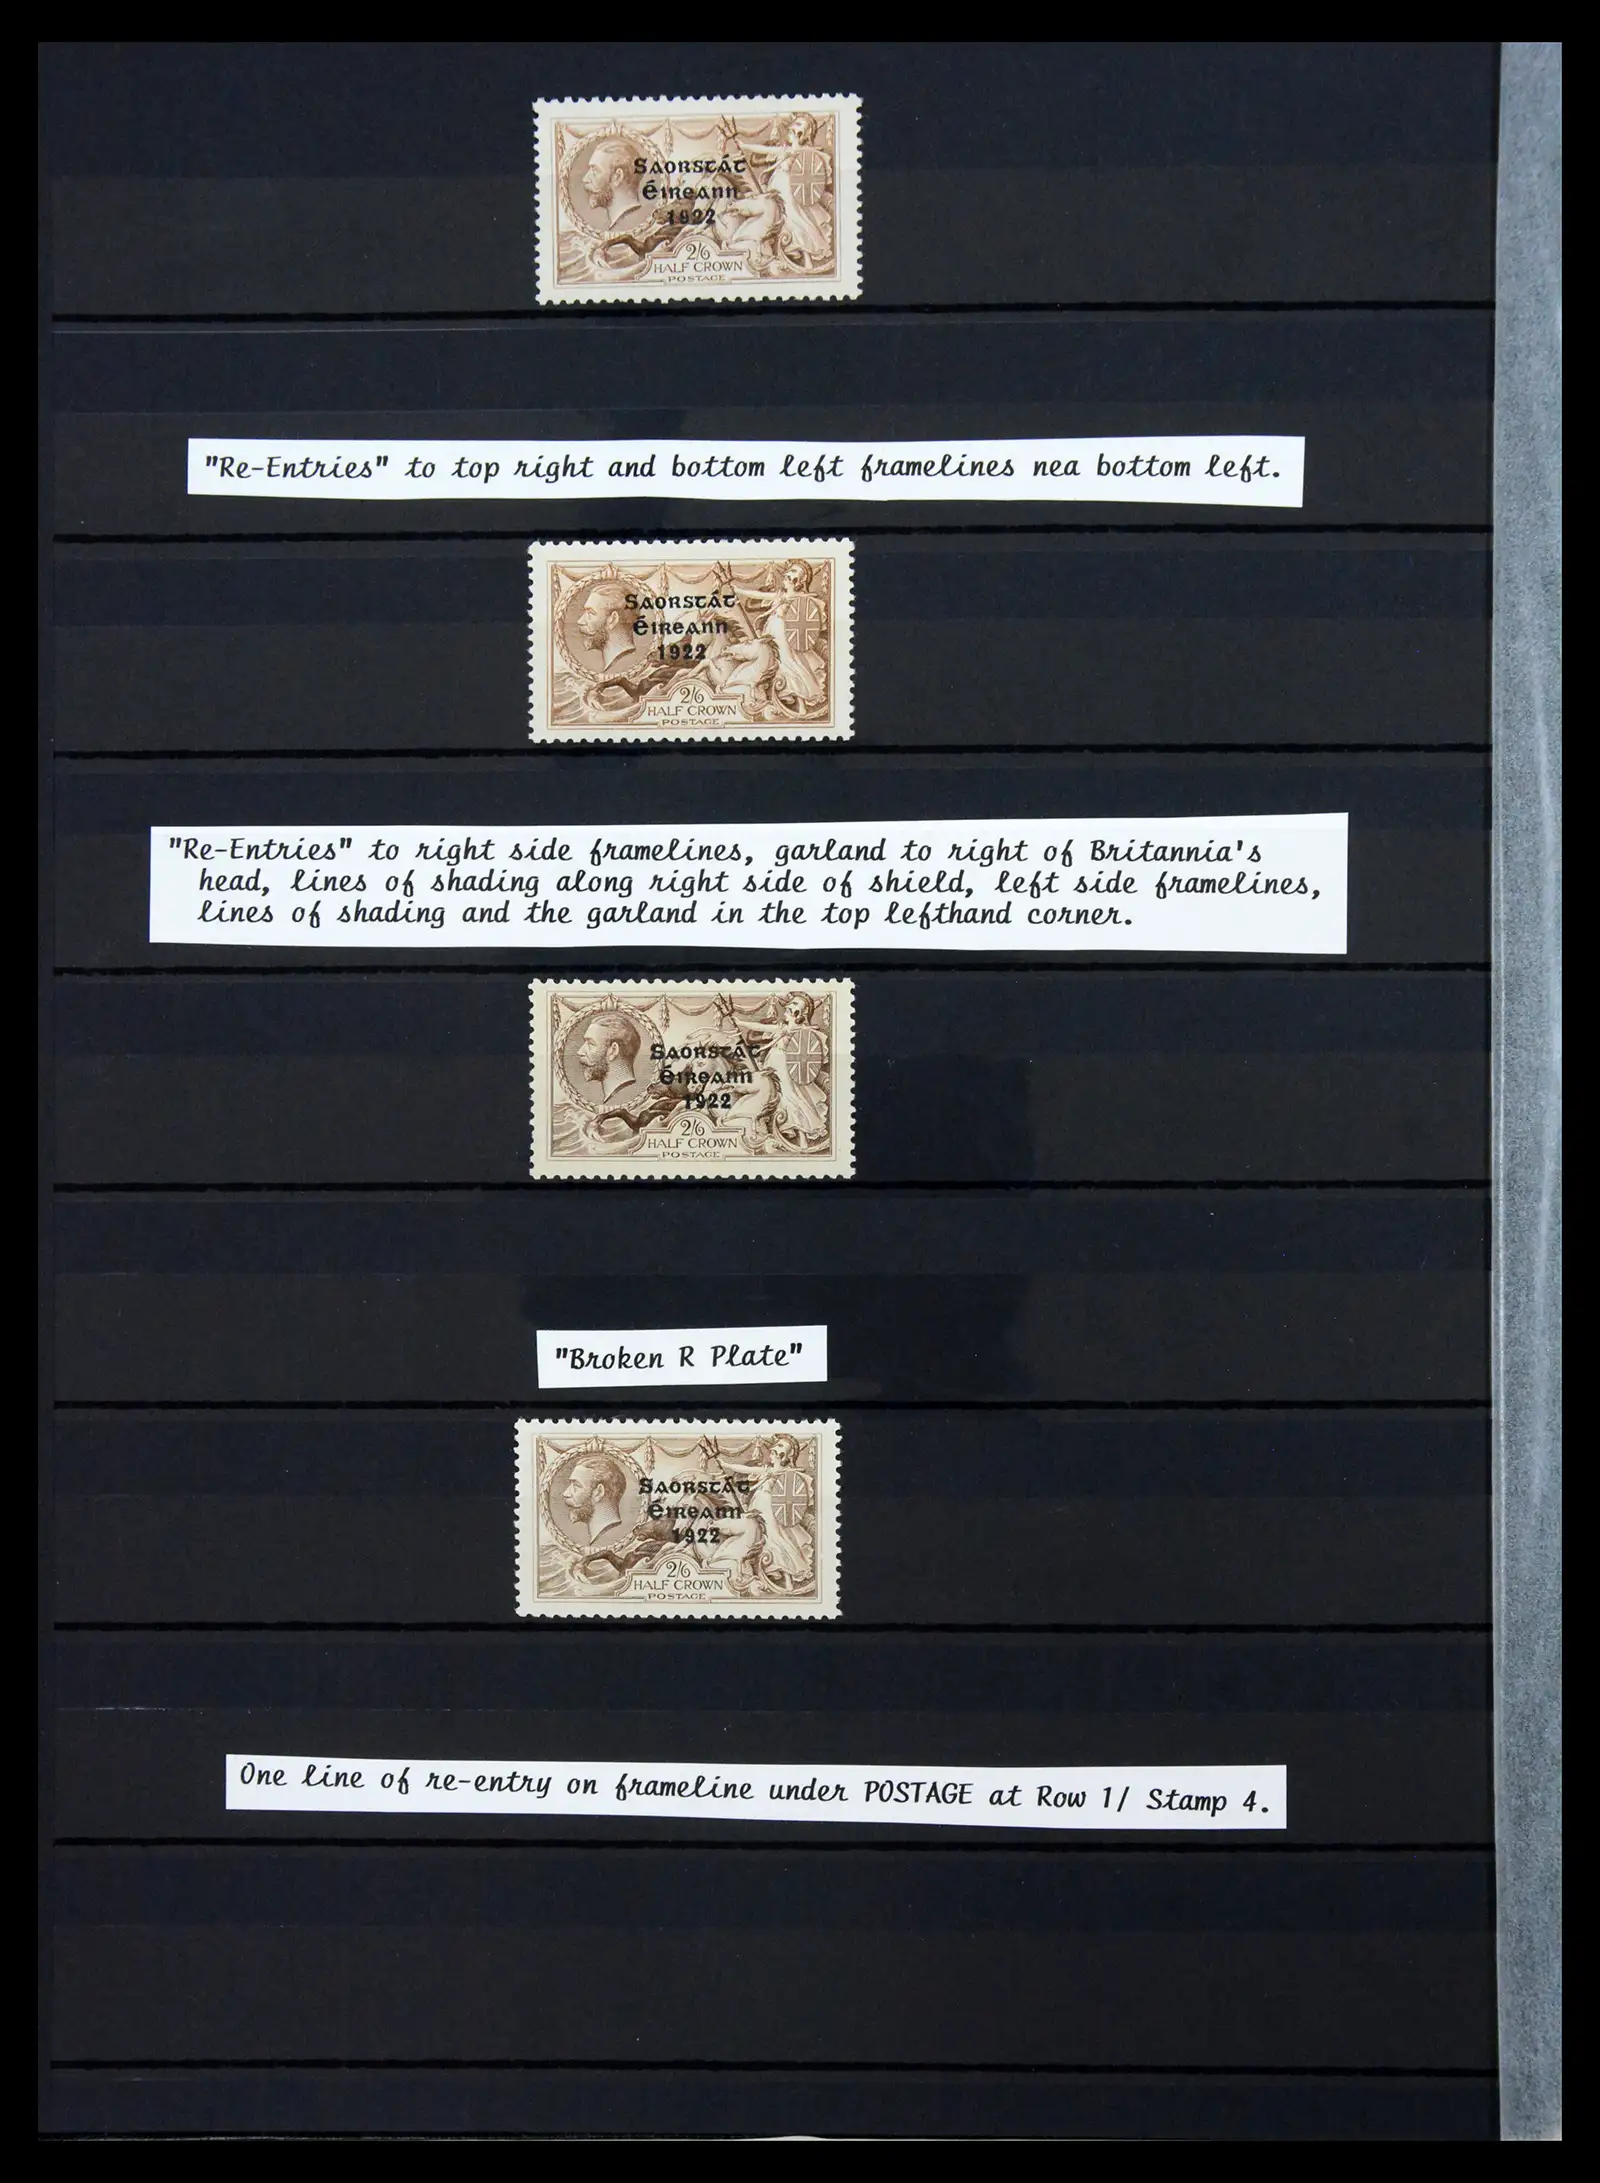 Saorstát
Éireann
1922
2/6
HALF CROWN
POSTAGE
"Re-Entries" to top right and bottom left framelines nea bottom left.
Saorstát
Éireann
1922
2/6
HALF CROWN
POSTAGE
"Re-Entries" to right side framelines, garland to right of Britannia's
head, lines of shading along right side of shield, left side framelines,
lines of shading and the garland in the top lefthand corner.
Saorstát
Éireann
1922
2/6
HALF CROWN
POSTAGE
"Broken R Plate"
Saorstát
Éireann
1922
2/6
HALF CROWN
POSTAGE
One line of re-entry on frameline under POSTAGE at Row 1/ Stamp 4.